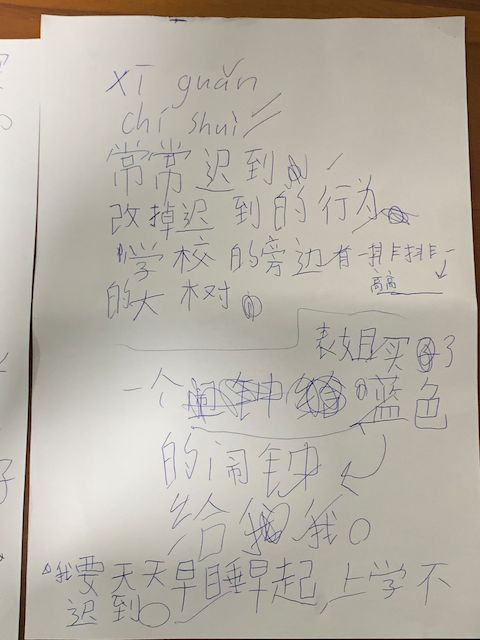 xī guǎn
chí shuì
常常迟到
改掉迟到的行为
学校的旁边有一排排
高高
的大树
表姐买了
一个闹钟蓝色
的闹钟
给我我。
我要天天早睡早起上学不
迟到。